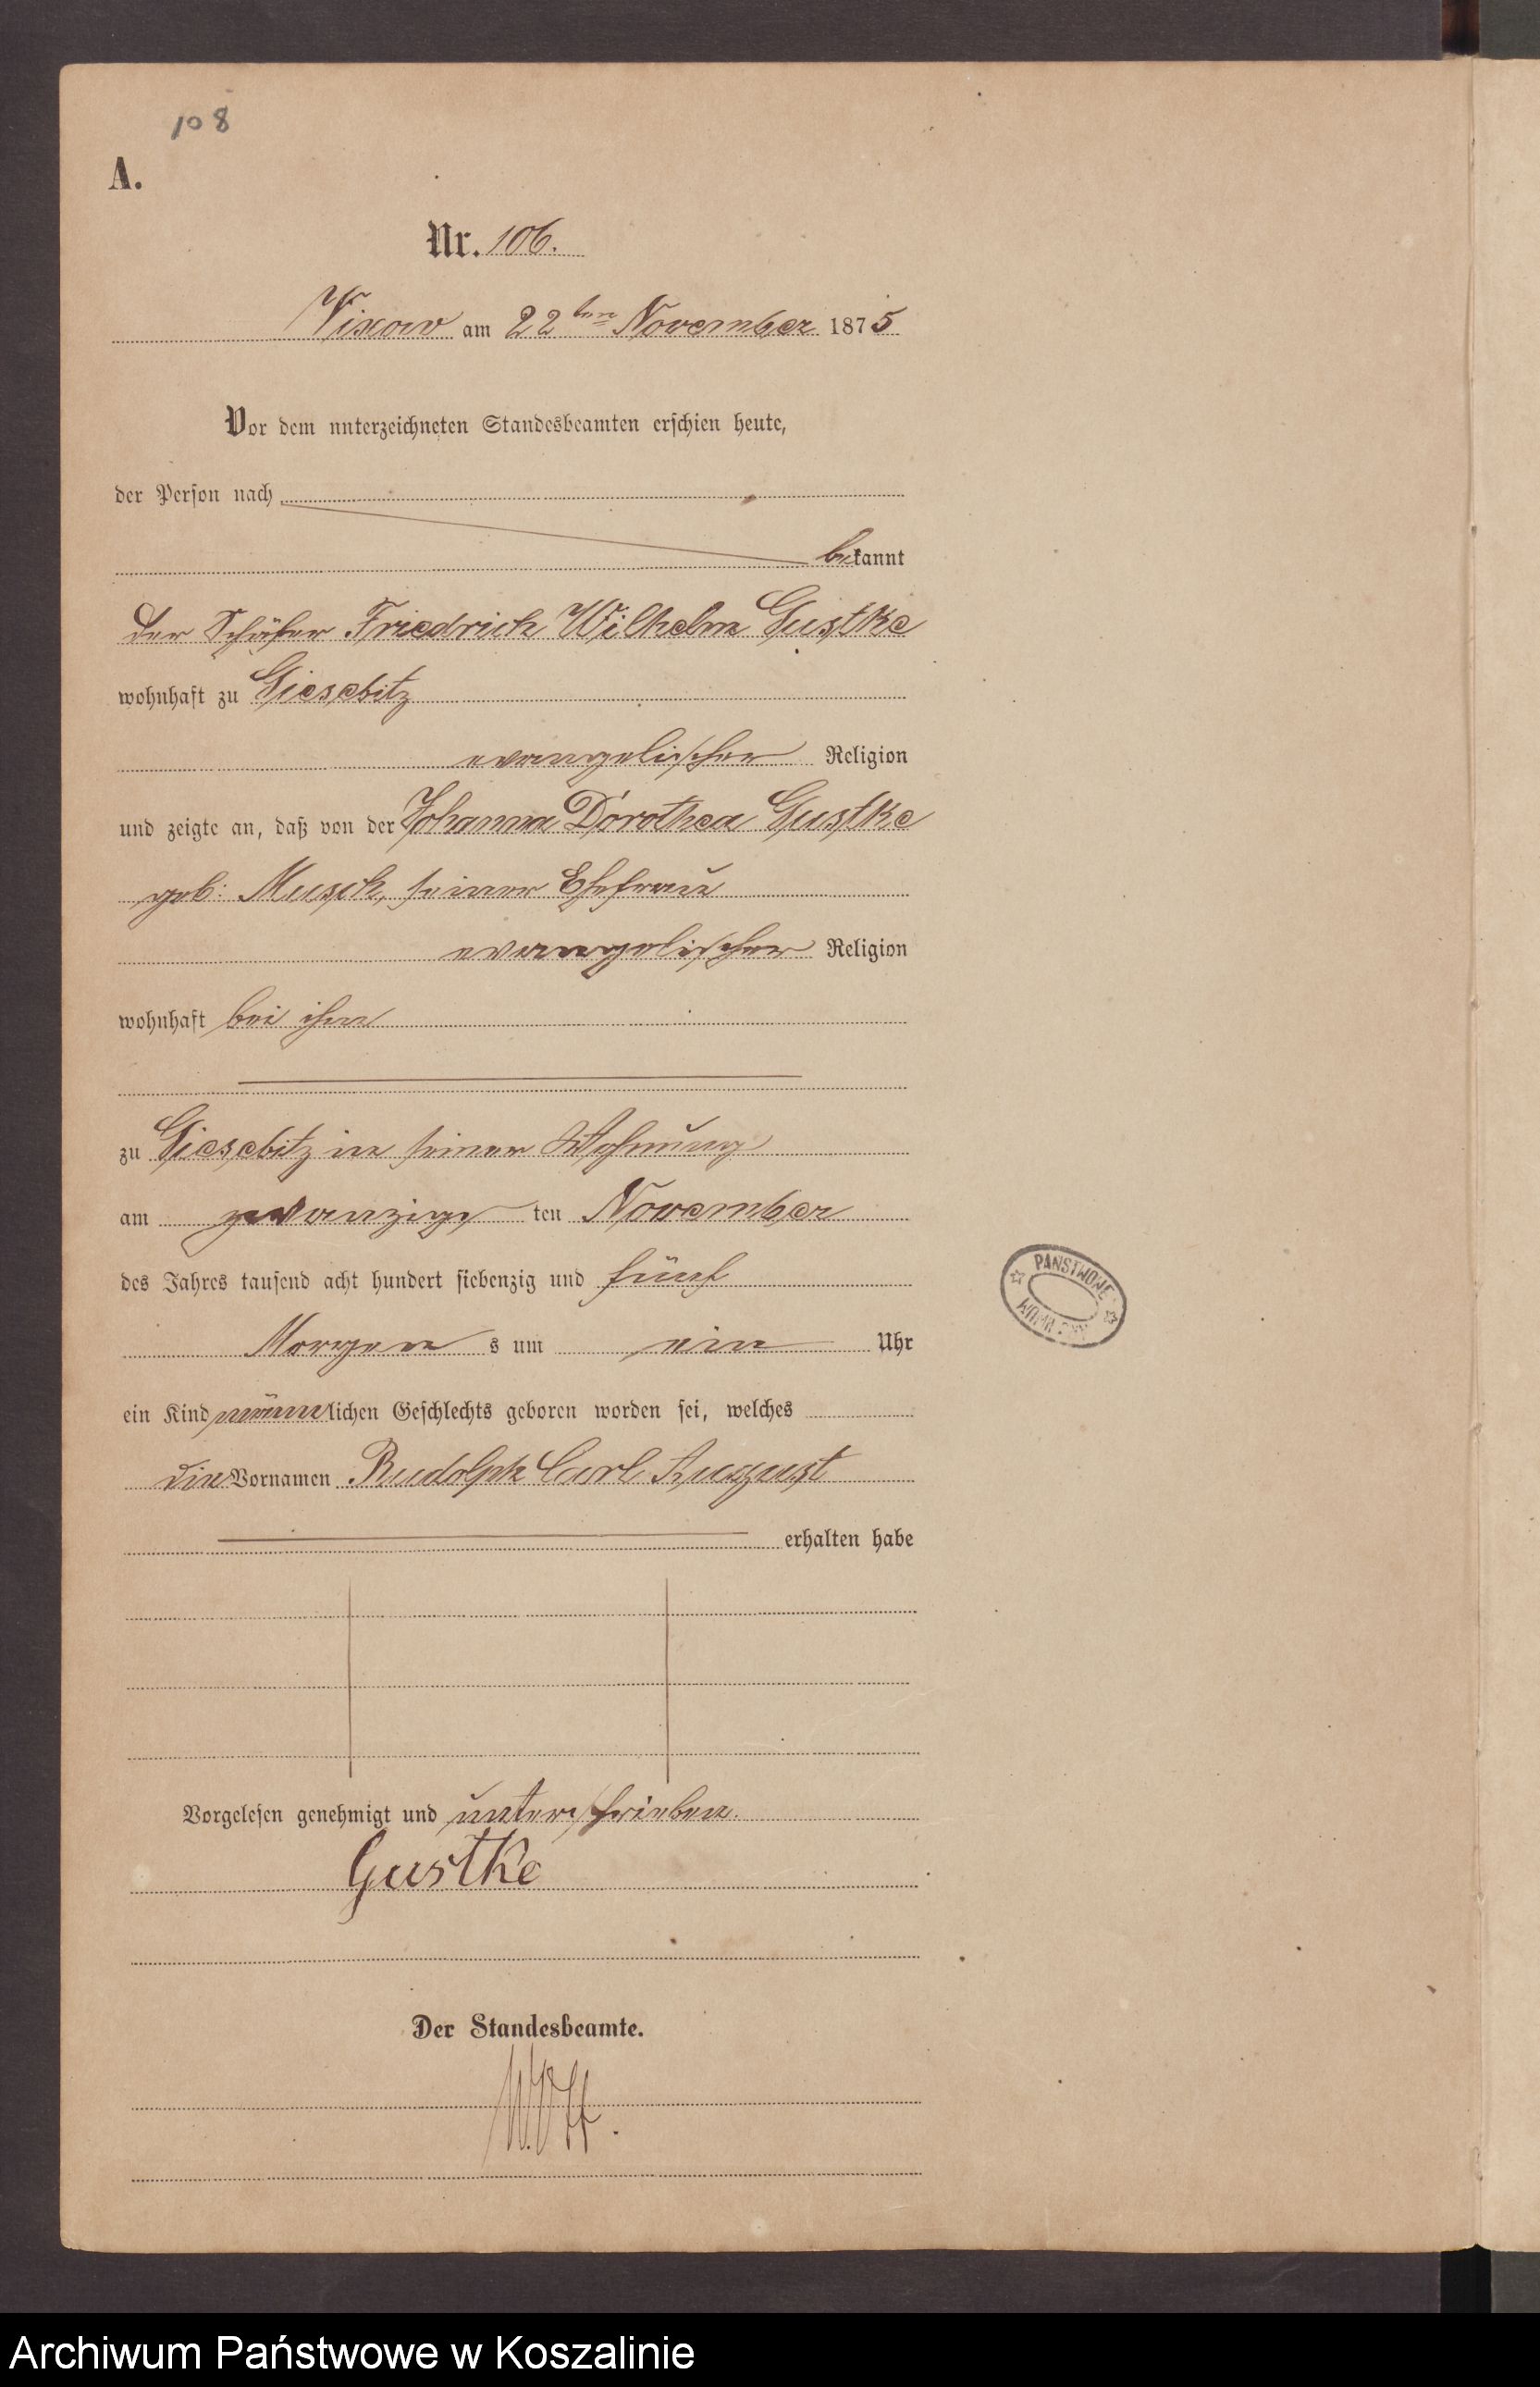 108
A.
Nr. 106.
Vixow am 22ten November 1875
Vor dem unterzeichneten Standesbeamten erschien heute,
der Person nach
bekannt
der Schäfer Friedrich Wilhelm Gustke
wohnhaft zu Giesebitz
evangelischer Religion
und zeigte an, daß von der Johanna Dorothea Gustke
geb: Musch, seiner Ehefrau
evangelischer Religion
wohnhaft bei ihm
zu Giesebitz in seiner Wohnung
am zwanzigsten November
des Jahres tausend acht hundert siebenzig und fünf
Morgens um ein Uhr
ein Kind männlichen Geschlechts geboren worden sei, welches
die Vornamen Rudolph Carl August
erhalten habe
Vorgelesen genehmigt und unterschrieben.
Gustke
Der Standesbeamte.
PAŃSTWOWE
Archiwum Państwowe w Koszalinie